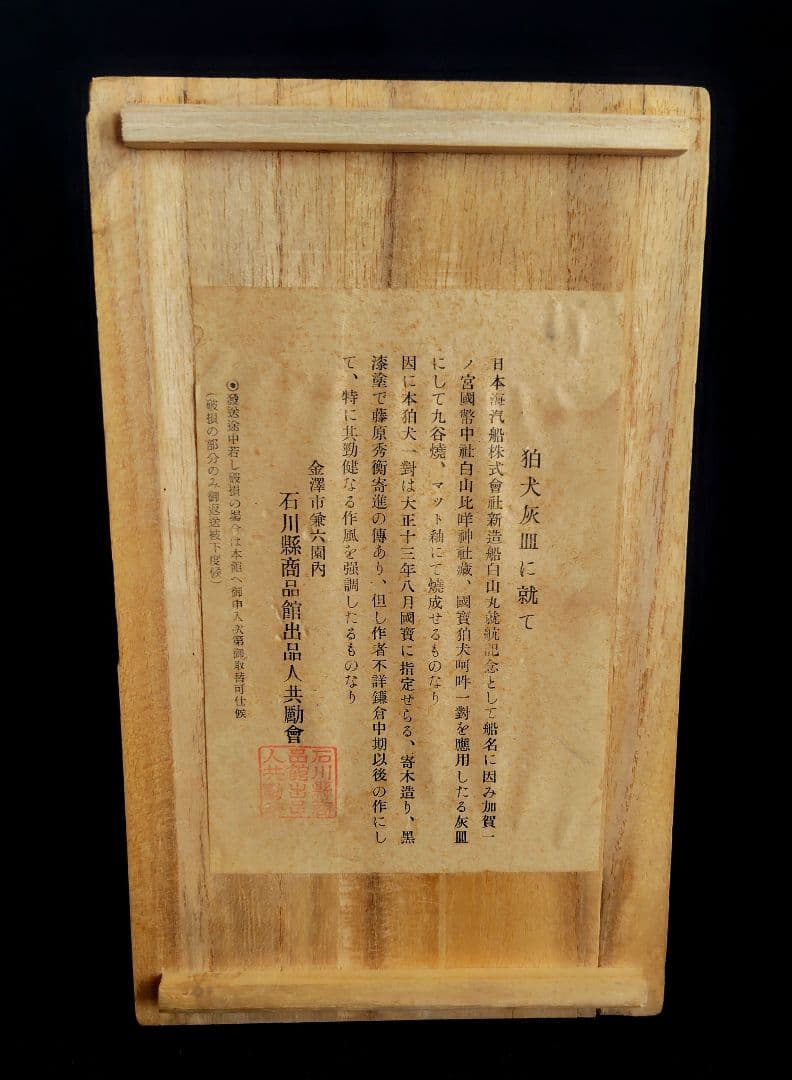 狛犬灰皿に就て
日本海汽船株式會社新造船白山丸就航記念として船名に因み加賀一
ノ宮國幣中社白山比咩神社藏、國寶狛犬呵吽一對を應用したる灰皿
にして九谷燒、マット釉にて燒成せるものなり
因に本狛犬一對は大正十三年八月國寶に指定せらる、寄木造り、黑
漆塗で藤原秀衡寄進の傳あり、但し作者不詳鎌倉中期以後の作にし
て、特に其勁健なる作風を强調したるものなり
金澤市兼六園內
石川縣商品館出品人共勵會
石川縣商
品館出品
人共勵會
◉發送途中若し破損の場合は本館へ御申入次第御取替可仕候
(破損の部分のみ御返送被下度候)